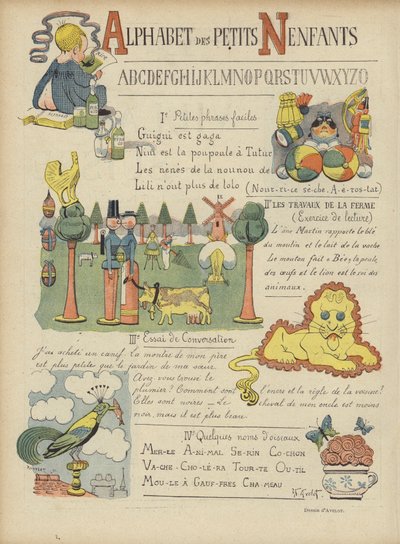 ALPHABET DES PETITS NENFANTS
ABCDEFGHIJKLMNOPQRSTUVWXYZO
Iº Petites phrases faciles
Guigui est gaga
Nini est la poupoule à Tutur
Les nénés de la nounou de
Lili n'ont plus de lolo (Nour-ri-ce sè-che. A-é-ros-tat)
IIº LES TRAVAUX DE LA FERME
(Exercice de lecture)
L'âne Martin rapporte le blé
du moulin et le lait de la vache.
Le mouton fait à Bée et la poule
des œufs et le lion est le roi des
animaux.
IIIº Essai de Conversation
J'ai acheté un canif. La montre de mon père
est plus petite que le jardin de ma sœur.
Avez-vous trouvé le
plumier? Comment sont l'encre et la règle de la voisine?
Elles sont noires — Le cheval de mon oncle est moins
noir, mais il est plus beau.
IVº Quelques noms d'oiseaux
MER-LE A-NI-MAL SE-RIN CO-CHON
VA-CHE CHO-LÉ-RA TOUR-TE OU-TIL
MOU-LE À GAUF-FRES CHA-MEAU
H. Avelot
Dessin d'AVELOT.